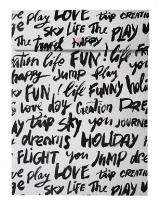 Play LOVE trip CREATION
SKY LIFE THE PLAY
The travel happy
eation life FUN! life
happy JUMP play
FUN! life FUNNY holiday
Love day Creation DREAM
trip SKY you JOURNEY
dreams HOLIDAY
FLIGHT you JUMP dream
Play LOVE trip CREATION
SKY LIFE THE PLAY